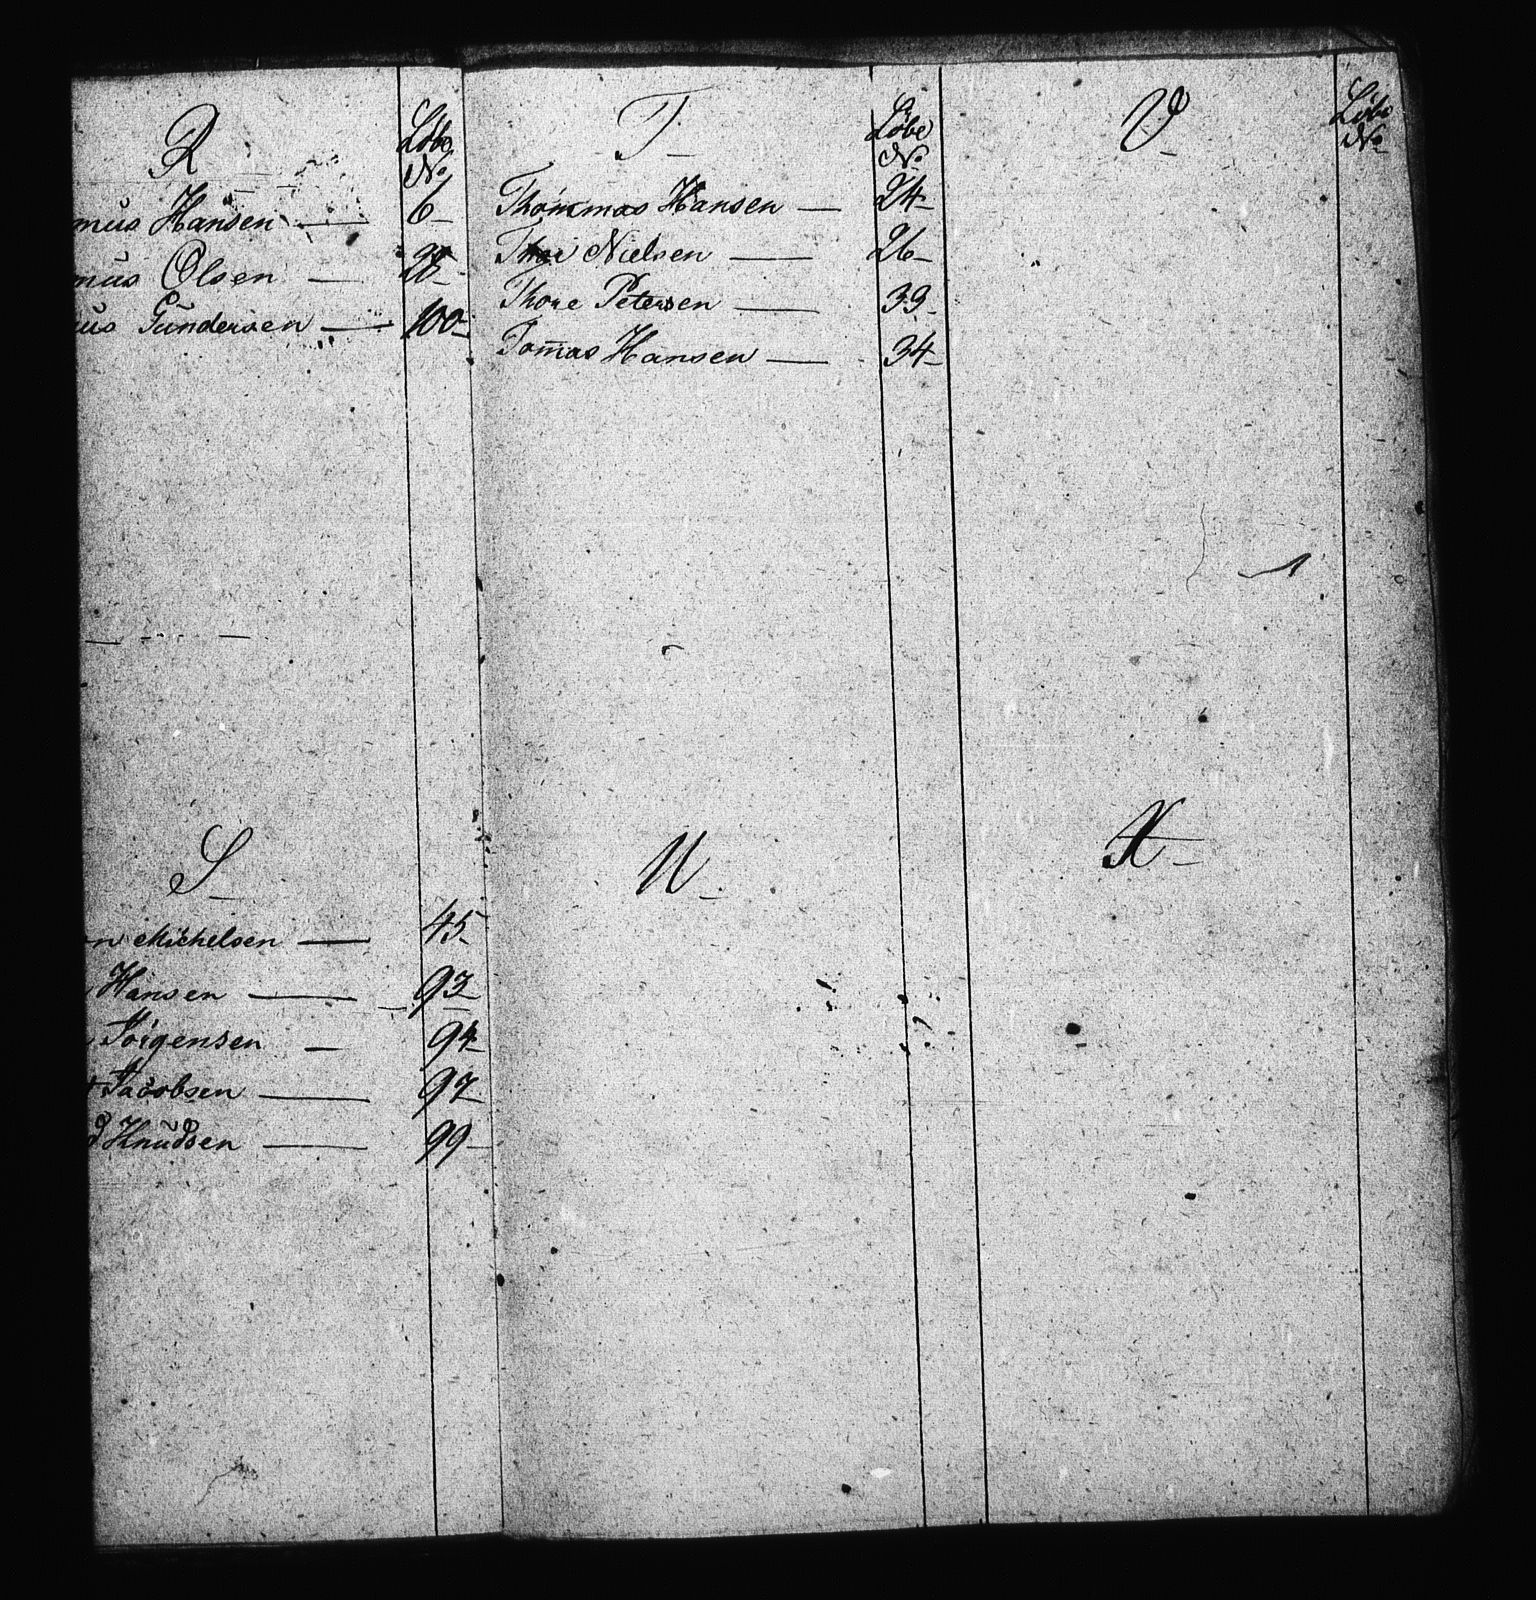 R
Løbe
No
mus Hansen — 6
mus Olsen — 28
us Gundersen — 100
S
on Michelsen — 45
Hansen — 93
Jörgensen — 94
Jacobsen — 97
d Knudsen — 99
T
Løbe
No
Thommas Hansen — 24
Nielsen — 26
Thore Petersen — 39
Tom̅as Hansen — 34
U
V
Løbe
No
X